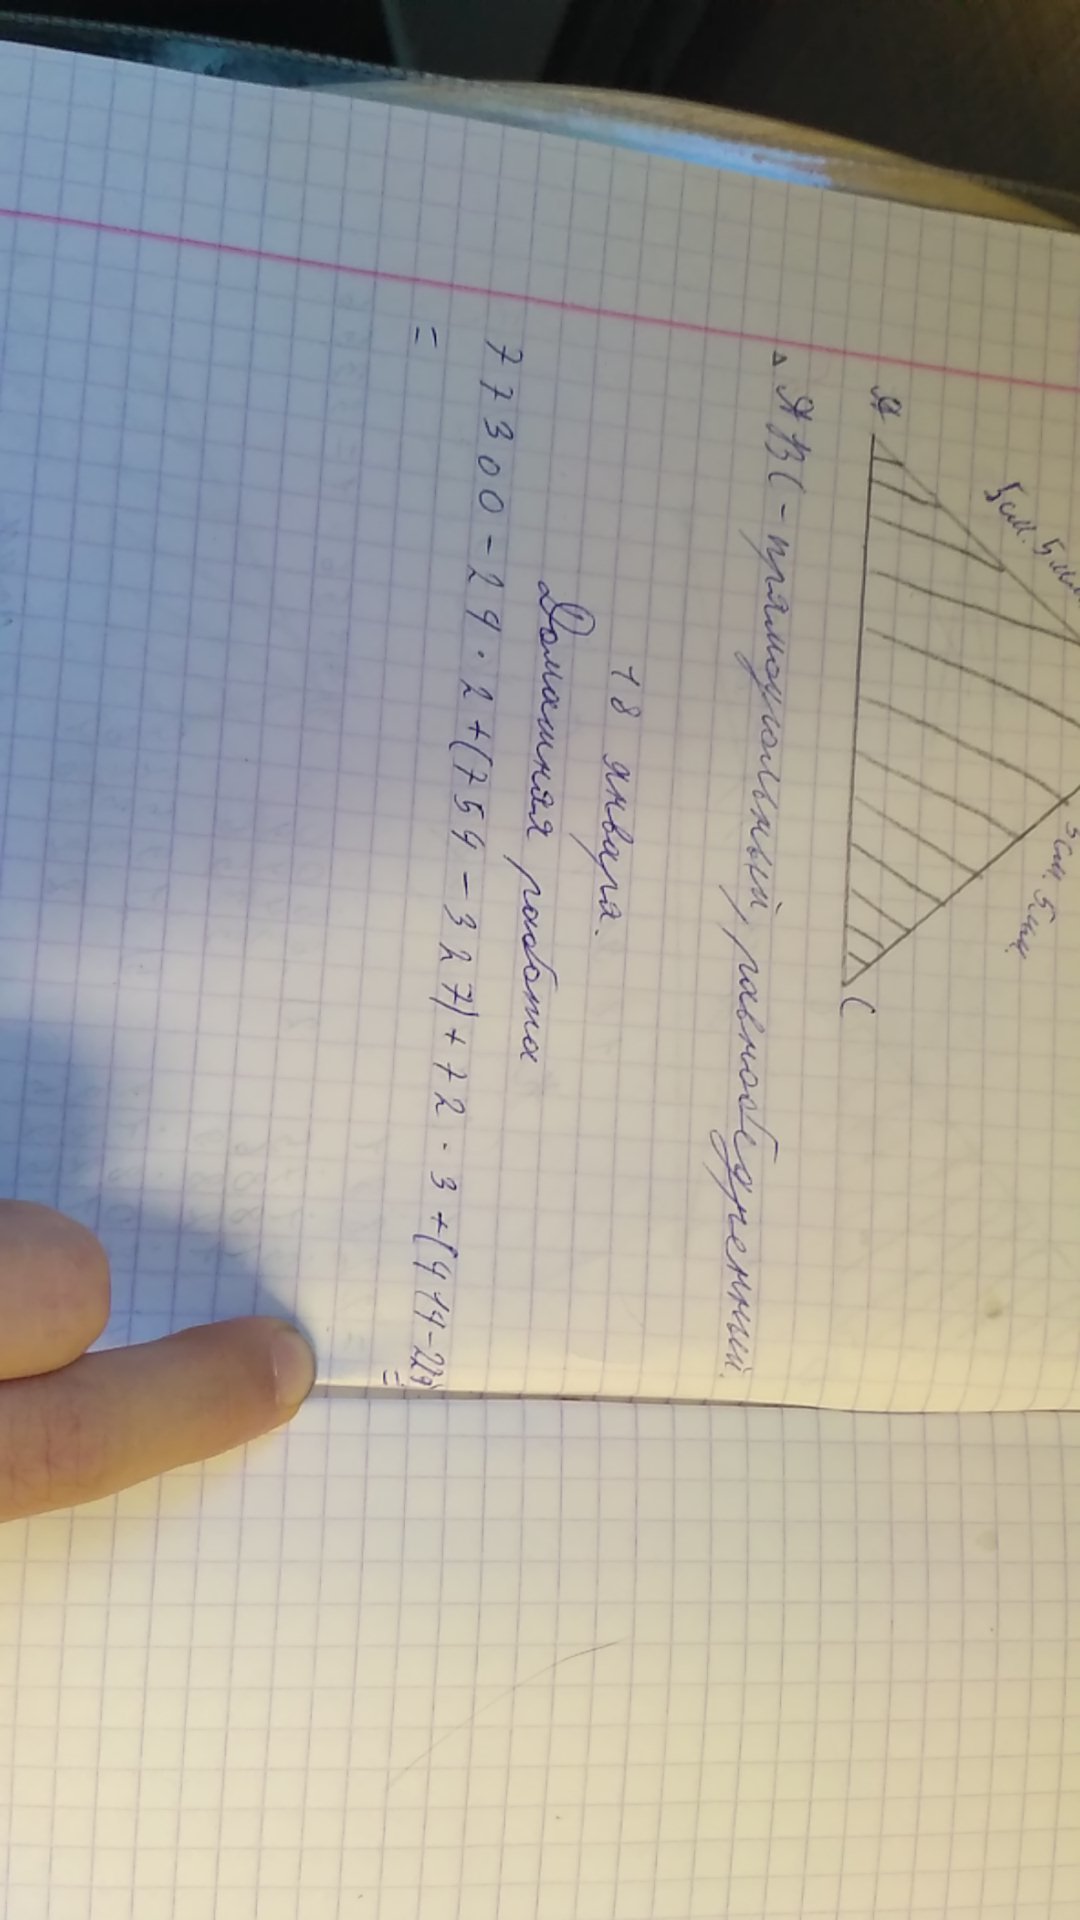 5 см. 5 мм
3 см. 5 мм
А C
△ АВС - прямоугольный, равнобедренный.
18 января.
Домашняя работа
77300-29·2+(759-327)+72·3+(419-229)=
=